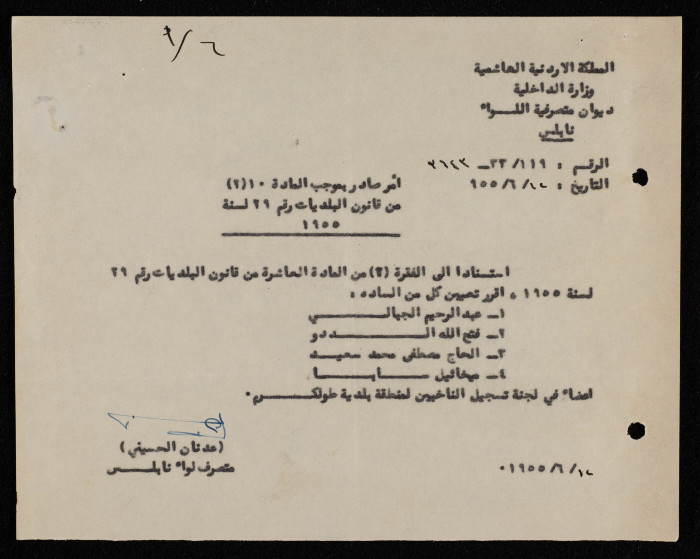 ٦/٢
المملكة الاردنية الهاشمية
وزارة الداخلية
ديوان متصرفية اللـــواء
نابلس
الرقم : ١١٩/ ٣٣ــ ٣٦٤٣
التاريخ : ١٢/ ٦/ ٩٥٥
أمر صادر بموجب المادة ١٠(٢)
من قانون البلديات رقم ٢٩ لسنة
١٩٥٥
استنادا الى الفقرة (٢) من المادة العاشرة من قانون البلديات رقم ٢٩
لسنة ١٩٥٥ ، اقرر تعيين كل من الساده :
١ــ عبد الرحيم الجبالـــــــــــي
٢ــ فتح الله الــــــــــــددو
٣ــ الحاج مصطفى محمد سعيـــد
٤ــ ميخائيل ســــــابــــــا
اعضاء في لجنة تسجيل الناخبين لمنطقة بلدية طولكـــــــرم.
(عدنان الحسيني)
متصرف لواء نابلـــــس
١٢/ ٦/ ١٩٥٥.